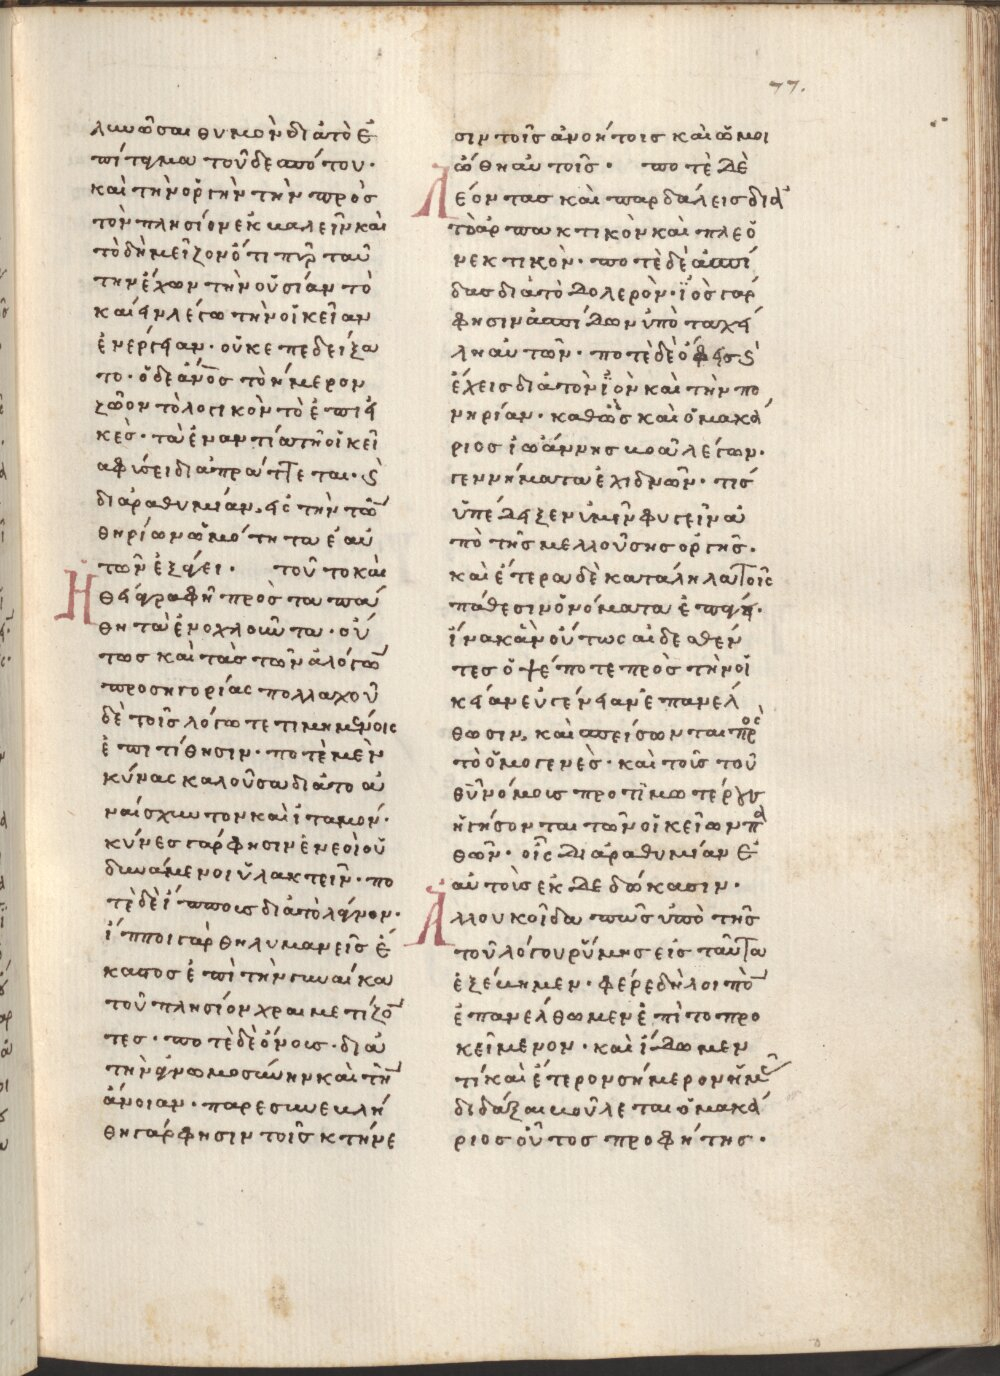 77.
λινῶσαι θυμὸν διὰ τὸ ἐ
πίταγμα τοῦ δεσπότου·
καὶ τὴν ὀργὴν τὴν πρὸς
τὸν πλησίον ἐκβαλεῖν καὶ
τὸ δὴ μεῖζον ὅτι πῦρ ταύ
την ἔχων τὴν οὐσίαν τὸ
καίειν λέγω τὴν οἰκείαν
ἐνέργειαν· οὐκ ἐπεδείξα
το· ὁ δὲ ἄνος τὸ ἥμερον
ζῶον τὸ λογικὸν τὸ ἐπιει
κές· τὰ ἐναντία τῆ οἰκεί
α φύσει διαπράττεται· ϗ
διὰ ῥαθυμίαν, εἰς τὴν τῶν
θηρίων ὠμότητα ἑαυ
τῶν ἐξάγει· τοῦτο καὶ
Ἡ θεία γραφὴ πρὸς τὰ πά
θη τὰ ἐνοχλοῦντα· οὕ
τως καὶ τὰς τῶν ἀλόγων
προσηγορίας πολλαχοῦ
δὲ τοῖς λόγω τετιμημένοις
ἐπιτίθησιν· ποτὲ μὲν
κύνας καλοῦσα διὰ τὸ ἀ
ναίσχυντον καὶ ἰταμόν·
κύνες γάρ φησιν ἐνεοὶ οὐ
δυνάμενοι ὑλακτεῖν· πο
τὲ δὲ ἵππους διὰ τὸ λάγνον·
ἵπποι γὰρ θηλυμανεῖς ἕ
καστος ἐπὶ τὴν γυναίκα
τοῦ πλησίον χρεμετίζον
τες· ποτὲ δὲ ὄνους· διὰ
τὴν ἀγνωμοσύνην καὶ τὴν
ἄνοιαν· παρεσυνεβλή
θη γάρ φησιν τοῖς κτήνε
σιν τοῖς ἀνοήτοις καὶ ὡμοι
ώθη αὐτοῖς· ποτὲ δὲ
Λέοντας καὶ παρδάλεις διὰ
τὸ ἁρπακτικὸν καὶ πλεο
νεκτικόν· ποτὲ δὲ ἀσπί
δας διὰ τὸ δολερόν· ἰὸς γάρ
φησιν ἀσπίδων ὑπὸ τὰ χεί
λη αὐτῶν· ποτὲ δὲ ὄφεις ϗ
ἔχεις διὰ τὸν ἰὸν καὶ τὴν πο
νηρίαν· καθὼς καὶ ὁ μακά
ριος ἰωάννης βοᾶ λέγων·
γεννήματα ἐχιδνῶν· τίς
ὑπέδειξεν ὑμῖν φυγεῖν ἀ
πὸ τῆς μελλούσης ὀργῆς·
καὶ ἕτερα δὲ κατάληλα τοῖς
πάθεσιν ὀνόματα ἐπάγει·
ἵνα κἂν οὕτως αἰδεσθέν
τες ὀψέ ποτε πρὸς τὴν οἰ
κείαν εὐγένειαν ἐπανέλ
θωσιν, καὶ σπείσωνται πρὸς
τὸ ὁμογενὲς· καὶ τοῖς τοῦ
θῦ νόμοις προτιμωτέρους
ἡγήσονται τῶν οἰκείων πα
θῶν· οἷς διὰ ῥαθυμίαν ἑ
αυτοὺς ἐκδεδώκασιν·
Ἀλλ' οὐκ οἶδα πῶς ὑπὸ τῆς
τοῦ λόγου ῥύμης εἰς ταῦτα
ἐξέβημεν· φέρε δὴ λοιπὸν
ἐπανέλθωμεν ἐπὶ τὸ προ
κείμενον· καὶ ἴδωμεν
τί καὶ ἕτερον σήμερον ἡμᾶς
διδάξαι βούλεται ὁ μακά
ριος οὗτος προφήτης·